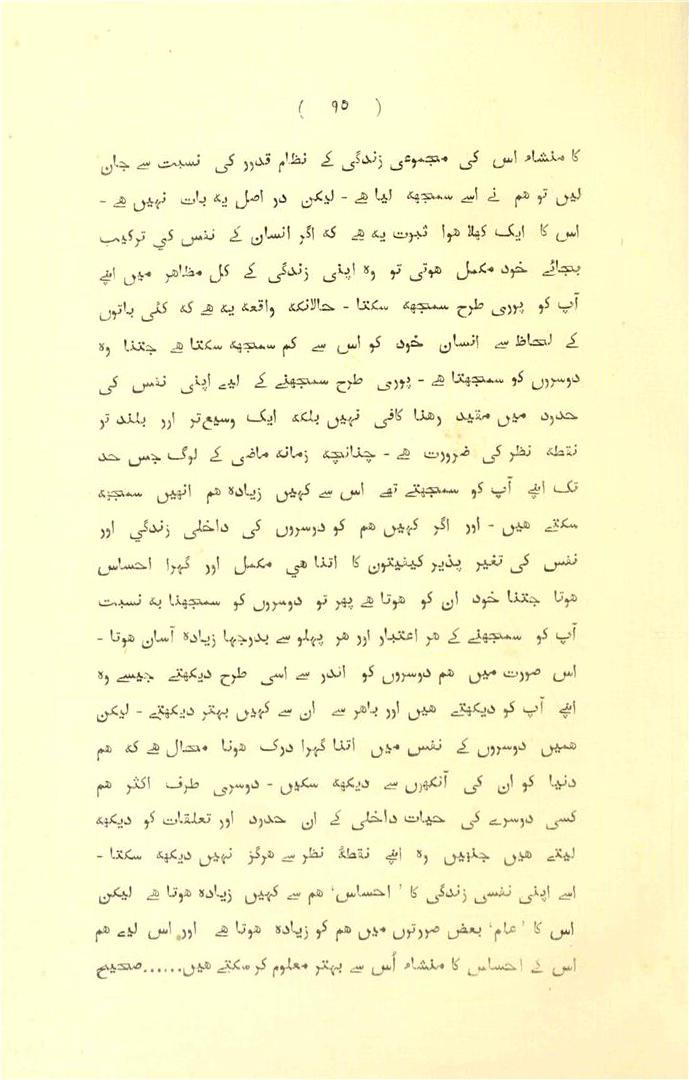 ( ۹۵ )
کا منشاء اس کی مجموعی زندگی کے نظام قدور کی نسبت سے جان
لیں تو هم نے اسے سمجهه لیا هے - لیکن در اصل یه بات نہیں هے -
اس کا ایک کھلا هوا ثبوت یه هے که اگر انسان کے نفس کي ترکیب
بجائے خود مکمل هوتی تو وہ اپنی زندگی کے کل مظاهر میں اپنے
آپ کو پوری طرح سمجهه سکتا - حالانکه واقعه یه هے که کئی باتوں
کے لحاظ سے انسان خود کو اس سے کم سمجهه سکتا هے جتنا وہ
دوسروں کو سمجھتا هے - پوری طرح سمجھنے کے لیے اپنی نفس کی
حدود میں مقید رهنا کافی نہیں بلکه ایک وسیع تر اور بلند تر
نقطه نظر کی ضرورت هے - چنانچه زمانه ماضی کے لوگ جس حد
تک اپنے آپ کو سمجھتے تھے اس سے کہیں زیادہ هم انھیں سمجهه
سکتے هیں - اور اگر کہیں هم کو دوسروں کی داخلی زندگي اور
نفس کی تغیر پذیر کیفیتوں کا اتنا هي مکمل اور گہرا احساس
هوتا جتنا خود ان کو هوتا هے پھر تو دوسروں کو سمجھنا به نسبت
آپ کو سمجھنے کے هر اعتبار اور هر پہلو سے بدرجہا زیادہ آسان هوتا -
اس صورت میں هم دوسروں کو اندر سے اسی طرح دیکھتے جیسے وہ
اپنے آپ کو دیکھتے هیں اور باهر سے ان سے کہیں بہتر دیکھتے - لیکن
همیں دوسروں کے نفس میں اتنا گہرا درک هونا محال هے که هم
دنیا کو ان کی آنکھوں سے دیکهه سکیں - دوسری طرف اکثر هم
کسی دوسرے کی حیات داخلی کے ان حدود اور تعلقات کو دیکهه
لیتے هیں جنہیں وہ اپنے نقطۂ نظر سے هرگز نہیں دیکهه سکتا -
اسے اپنی نفسی زندگی کا ' احساس' هم سے کہیں زیادہ هوتا هے لیکن
اس کا 'علم' بعض صورتوں میں هم کو زیادہ هوتا هے اور اس لیے هم
اس کے احساس کا منشاء اُس سے بہتر معلوم کر سکتے هیں......صحیح